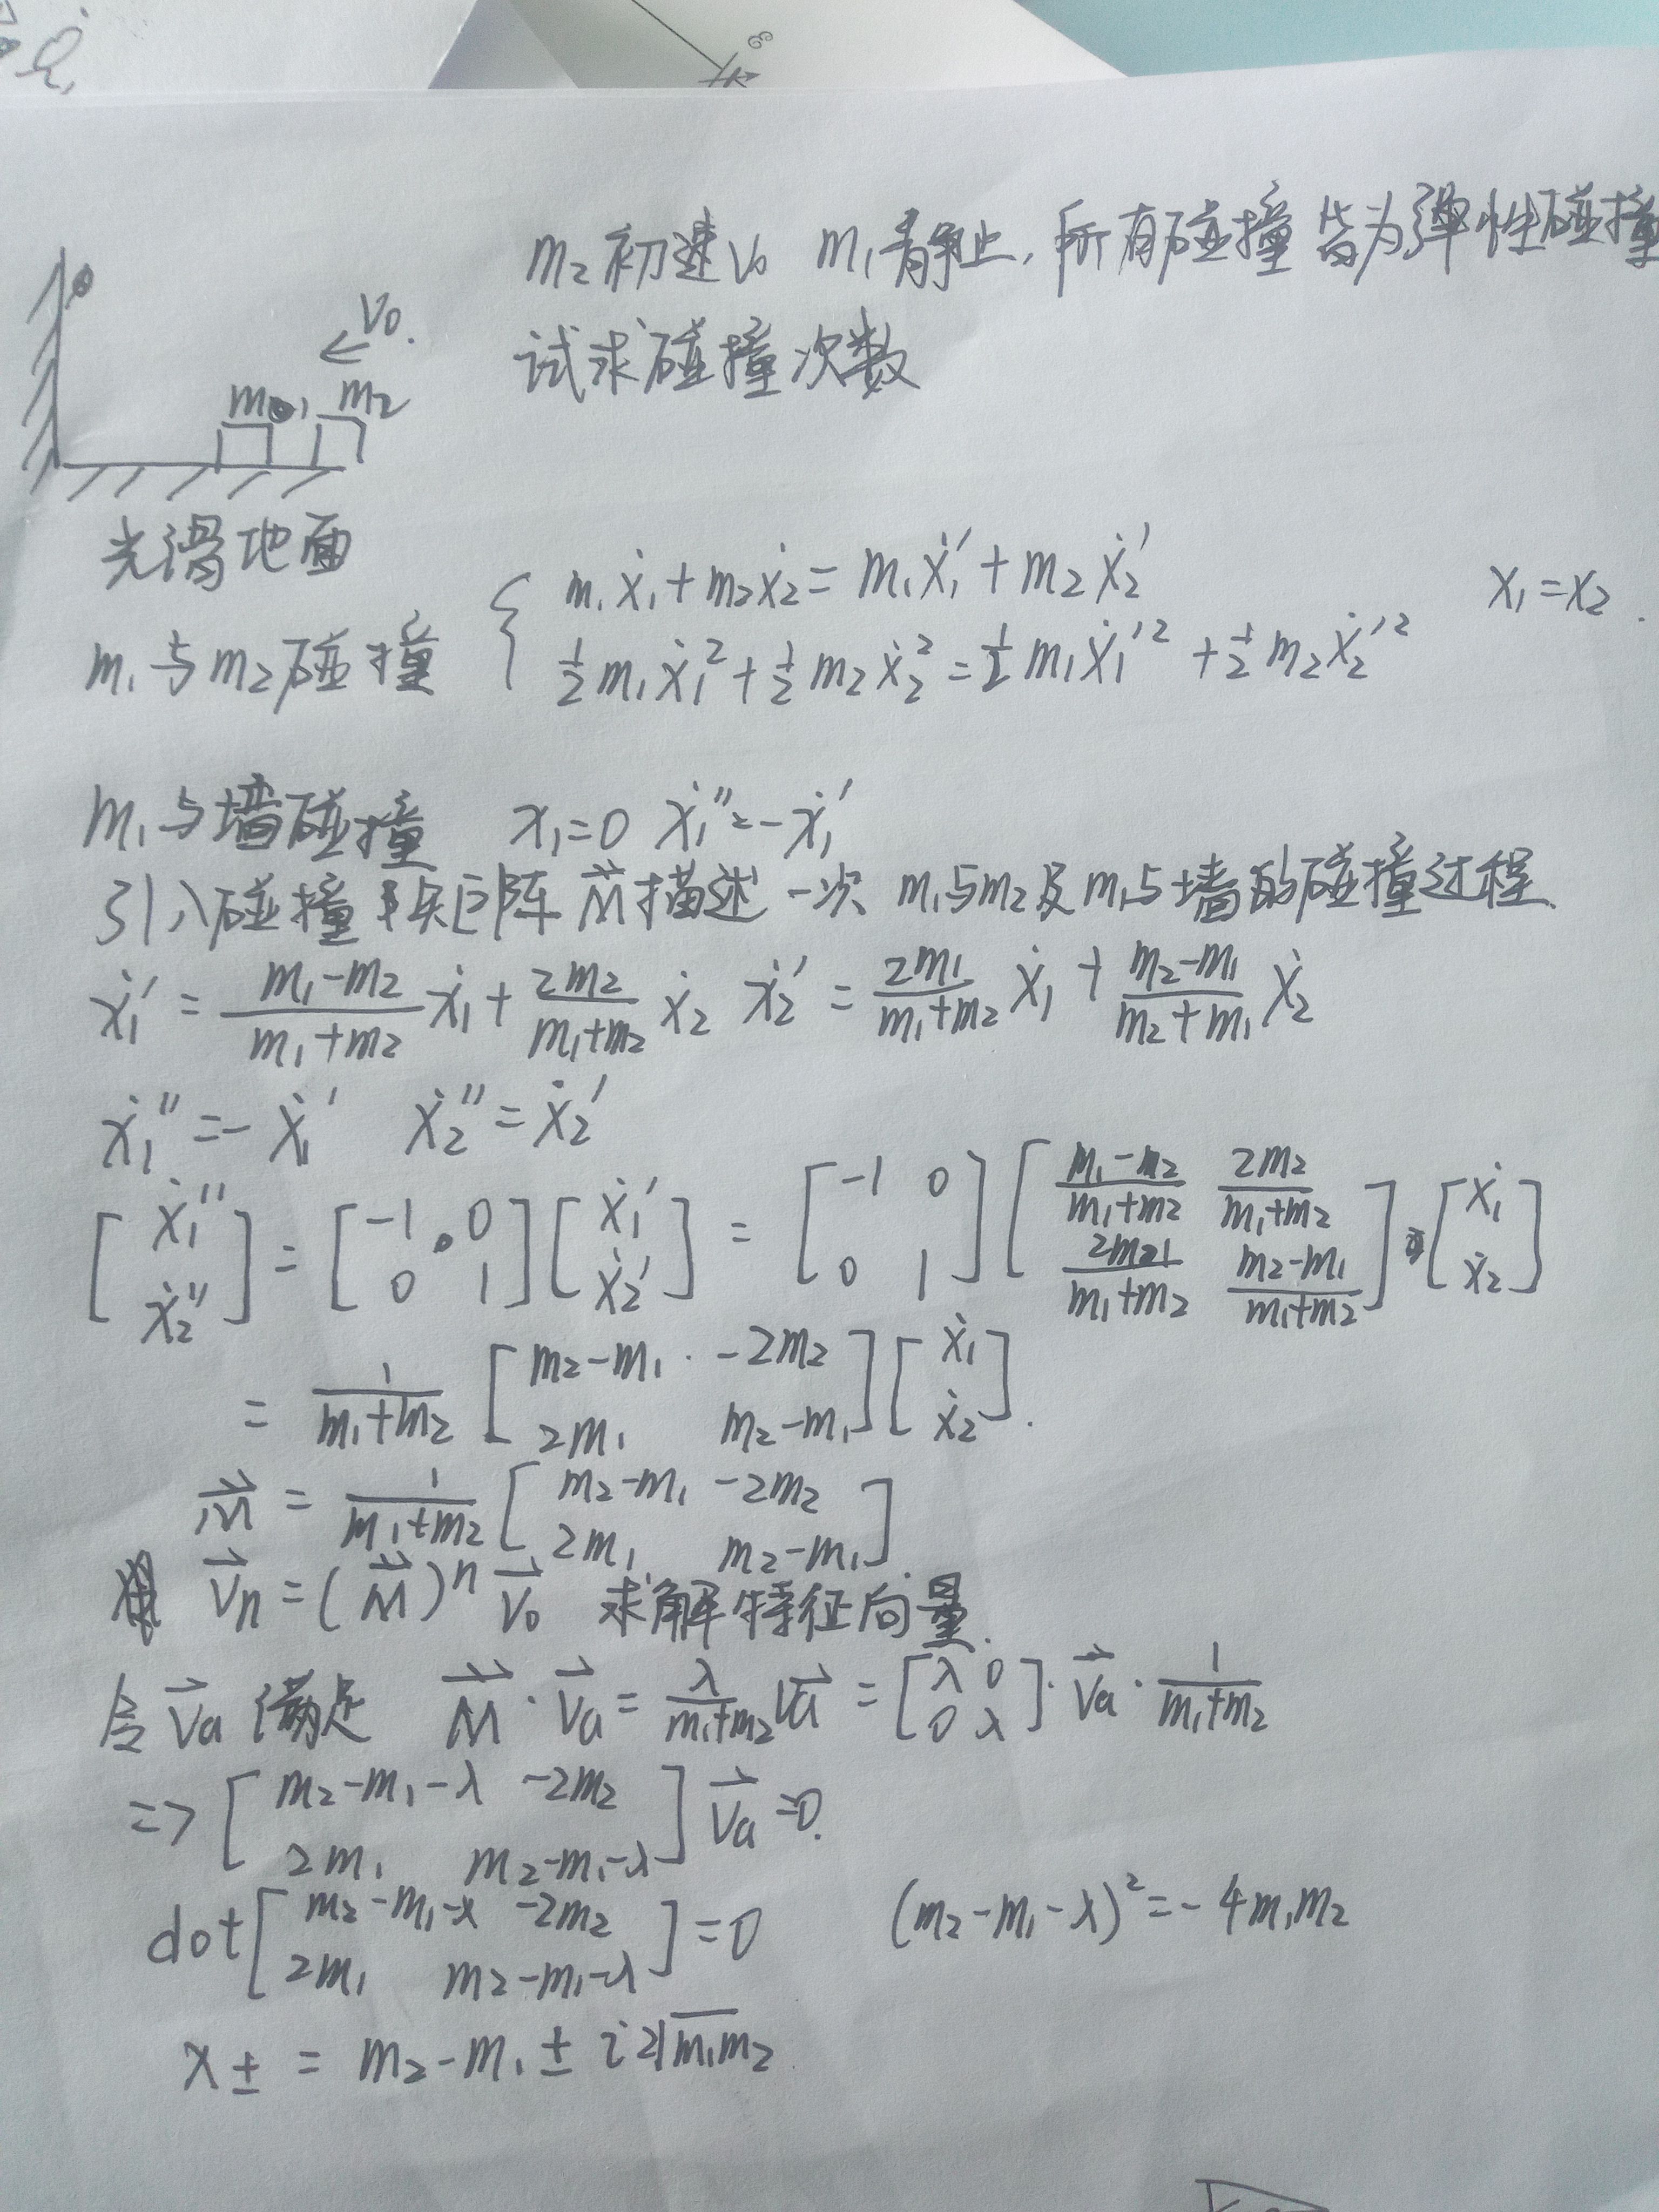 Q̇,
m₂初速v₀ m₁静止,所有碰撞皆为弹性碰撞
试求碰撞次数
V₀.
m₁ m₂
光滑地面
m₁与m₂碰撞 { m₁ẋ₁+m₂ẋ₂=m₁ẋ₁′+m₂ẋ₂′ x₁=x₂.
½m₁ẋ₁²+½m₂ẋ₂²=½m₁ẋ₁′²+½m₂ẋ₂′²
m₁与墙碰撞 x₁=0 ẋ₁″=-ẋ₁′
引入碰撞矩阵 M⃗ 描述一次 m₁与m₂及m₁与墙的碰撞过程.
ẋ₁′ = (m₁-m₂)/(m₁+m₂) ẋ₁ + 2m₂/(m₁+m₂) ẋ₂ ẋ₂′ = 2m₁/(m₁+m₂) ẋ₁ + (m₂-m₁)/(m₂+m₁) ẋ₂
ẋ₁″=-ẋ₁′ ẋ₂″=ẋ₂′
[ẋ₁″; ẋ₂″] = [-1 0; 0 1][ẋ₁′; ẋ₂′] = [-1 0; 0 1][(m₁-m₂)/(m₁+m₂) 2m₂/(m₁+m₂); 2m₁/(m₁+m₂) (m₂-m₁)/(m₁+m₂)][ẋ₁; ẋ₂]
= 1/(m₁+m₂) [m₂-m₁ -2m₂; 2m₁ m₂-m₁][ẋ₁; ẋ₂].
M⃗ = 1/(m₁+m₂) [m₂-m₁ -2m₂; 2m₁ m₂-m₁]
V⃗n=(M⃗)ⁿV⃗₀ 求解特征向量.
令V⃗a满足 M⃗·V⃗a = λ/(m₁+m₂) V⃗a = [λ 0; 0 λ]·V⃗a·1/(m₁+m₂)
=> [m₂-m₁-λ -2m₂; 2m₁ m₂-m₁-λ] V⃗a=0.
dot[m₂-m₁-λ -2m₂; 2m₁ m₂-m₁-λ]=0 (m₂-m₁-λ)²=-4m₁m₂
λ± = m₂-m₁ ± i2√m₁m₂